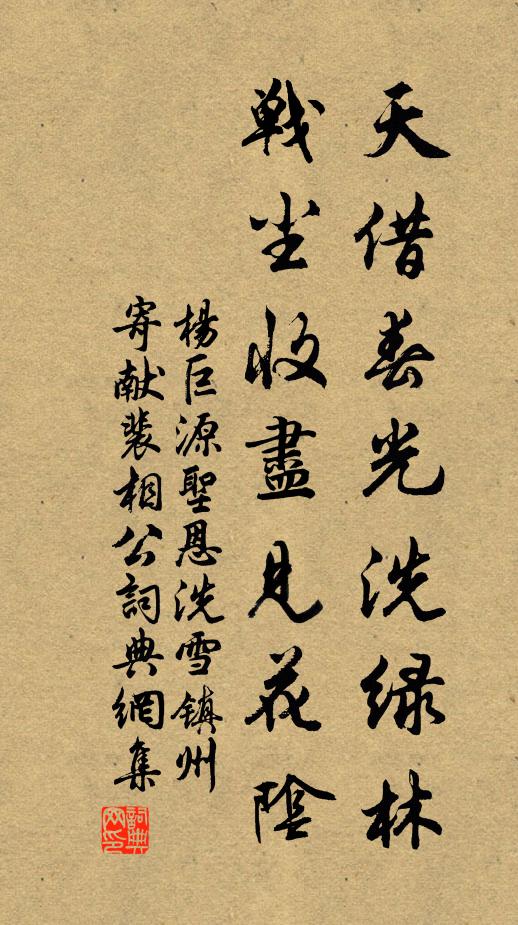 天借春光洗綠林
戰塵收盡見花陰
楊巨源聖恩洗雪鎮州
寄獻裴相公詞典網集
詞典
网印